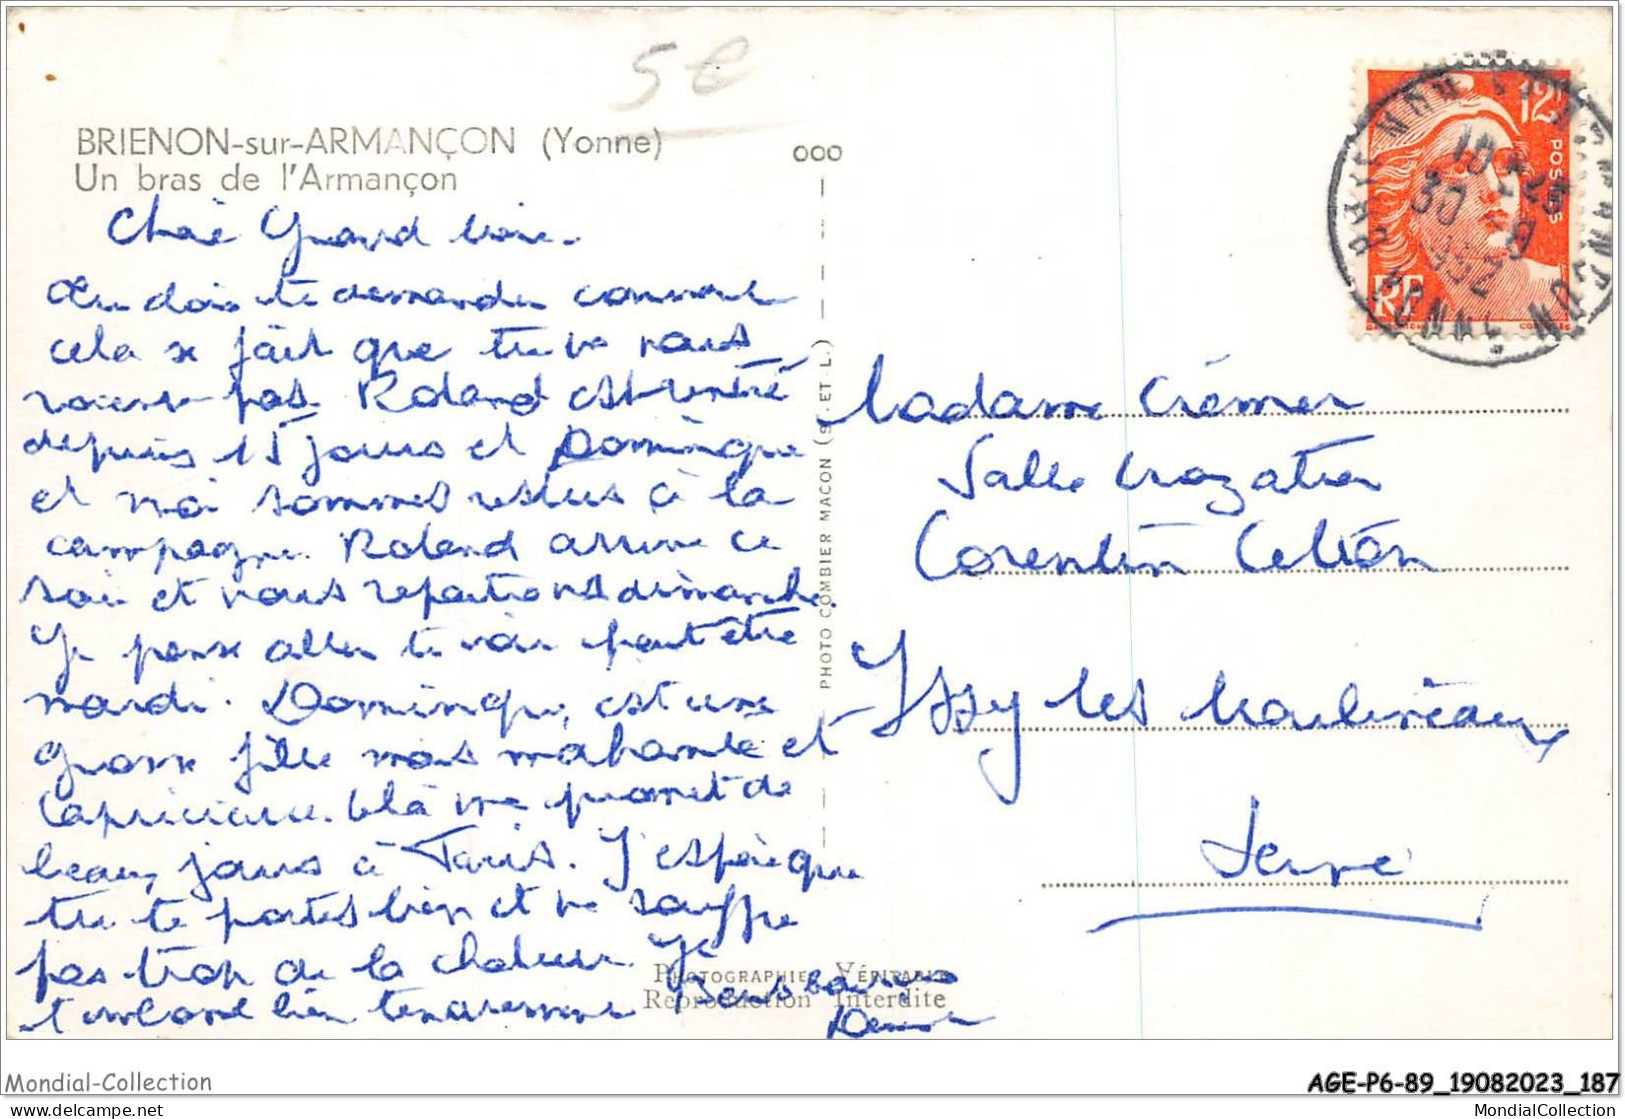 5€
BRIENON-sur-ARMANÇON (Yonne)
Un bras de l'Armançon
000
12F
POSTES
RF
10 H
30
1952
YONNE
Chère Grand mère.
Tu dois te demander comment
cela se fait que tu ne nous
voies pas. Roland est rentré
depuis 15 jours et Dominique
et moi sommes restées à la
campagne. Roland arrive ce
soir et nous repartons dimanche.
Je pense aller te voir peut être
mardi. Dominique est une
grosse fille mais méchante et
capricieuse. Celà me promet de
beaux jours à Paris. J'espère que
tu te portes bien et ne souffre
pas trop de la chaleur. Je
t'embrasse bien tendrement
Denise
Madame Crémer
Salle Crozatier
Corentin Celton
Issy les Moulineaux
Seine
PHOTO COMBIER MACON (S. ET L.)
PHOTOGRAPHIE VÉRITABLE
Reproduction Interdite
Mondial-Collection
AGE-P6-89_19082023_187
www.delcampe.net
MondialCollection